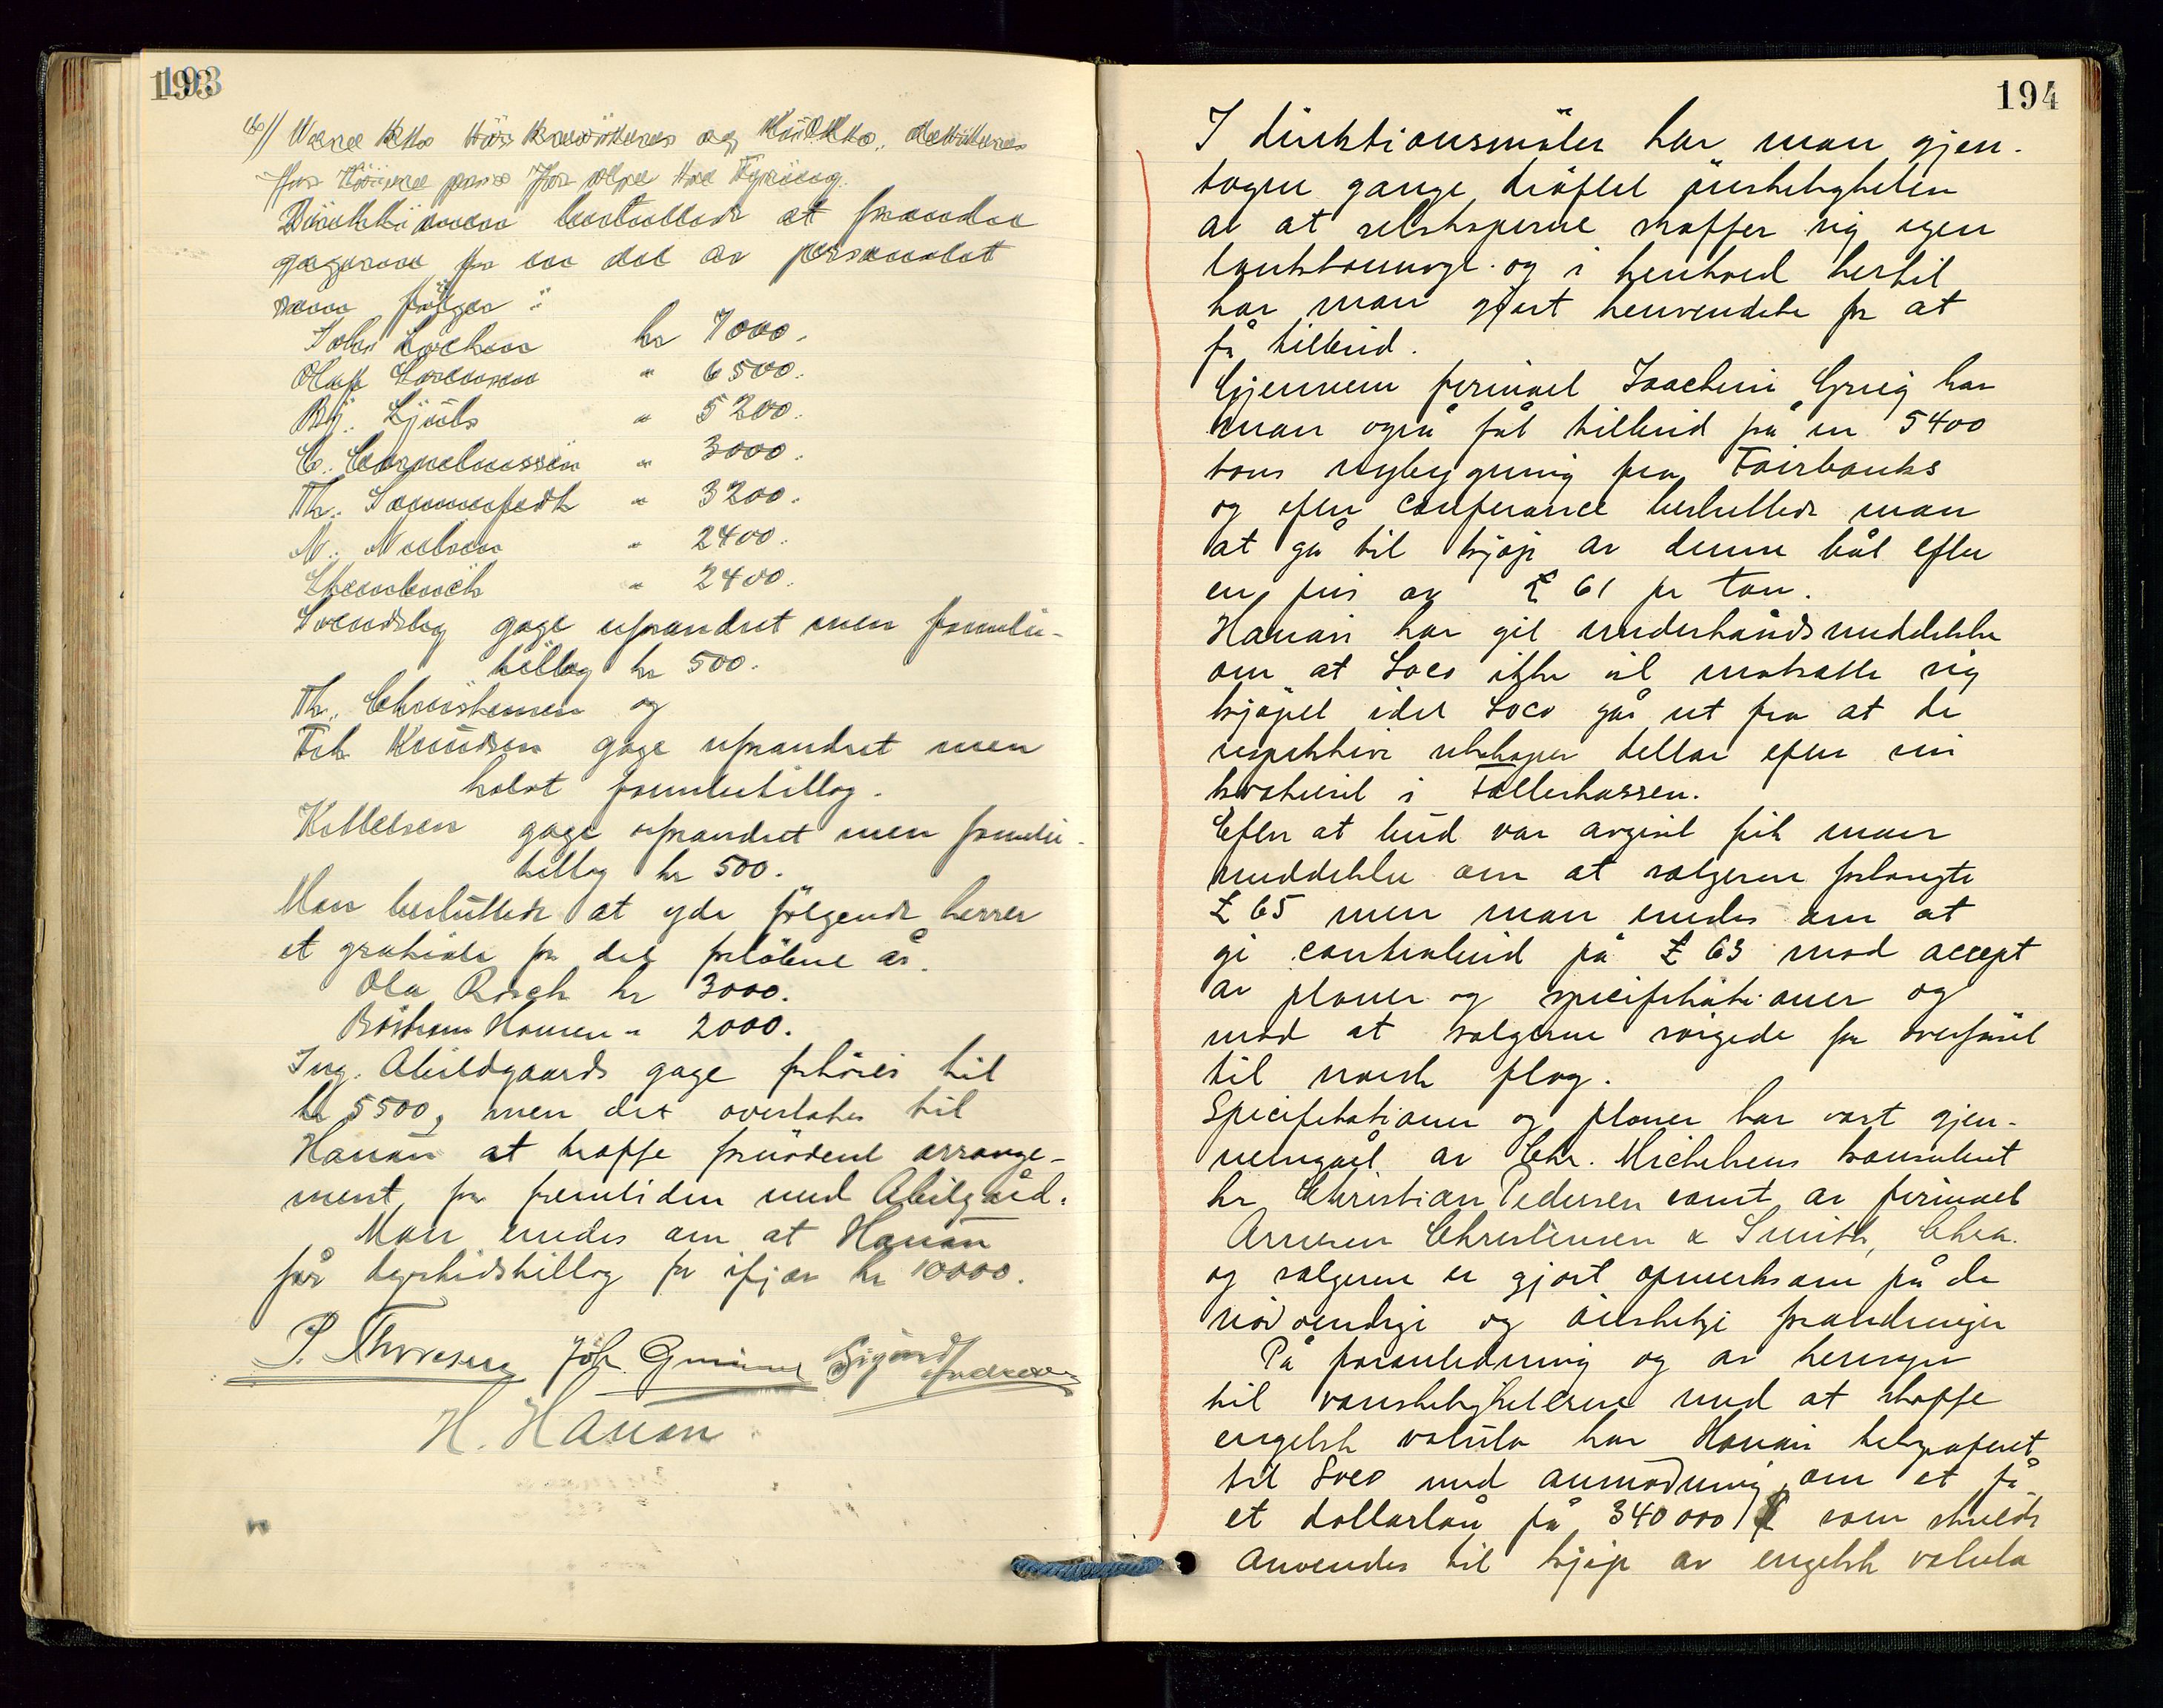 193
Direktionen besluttede at forandre
gagerne for en del av personalet
som følger:
John Lochen kr 7000.
Olaf Sørensen " 6500.
Bj. Ljuls " 5200.
C. Cornelinssen " 3000.
Th. Sommerfedt " 3200.
N. Nielsen " 2400.
" 2400.
Svendsby gage uforandret men familie-
tillæg kr 500.
Th. Christensen og
Fch Knudsen gage uforandret men
halvt familietillæg.
Kittelsen gage uforandret men familie-
tillæg kr 500.
Man besluttede at yde følgende herrer
et gratiale for det forløbne år.
Ola Risch kr 3000.
Hansen " 2000.
Ing. Abildgaards gage forhöies til
kr 5500, men det overlates til
Hanan at træffe fornödent arrange-
ment for fremtiden med Abilgård.
Man enedes om at Hanan
får dyrtidstillæg for ifjor kr 10000.
P. Thoresen Joh. Sigurd Andresen
H. Hanan
194
I direktionsmöter har man gjen-
tagne gange dröftet önskeligheten
av at selskaperne skaffer sig egen
tanktonnage og i henhold hertil
har man gjort henvendelse for at
få tilbud.
Gjennem firmaet Joachim Grieg har
man også fåt tilbud på en 5400
tons nybygning fra Fairbanks
og efter conferance besluttede man
at gå til kjøp av denne båt efter
en pris av £ 61 pr ton.
Hanan har git underhåndsmeddelelse
om at Soco ikke vil motsætte sig
kjøpet idet Soco går ut fra at de
respektive selskaper deltar efter sin
kvoteeil i Fælleskassen.
Efter at bud var avgivet fik man
meddelelse om at sælgeren forlangte
£ 65 men man enedes om at
gi contrabud på £ 63 mod accept
av planer og specifikationer og
mod at sælgerne sörgede for överförsel
til norsk flag.
Specifikationer og planer har vært gjen-
nemgået av Chr. Michelsens konsulent
hr Christian Pedersen samt av firmaet
Arnesen Christensen & Smith, Chra.
og sælgerne er gjort opmerksom på de
nödvendige og önskelige forandringer
På foranledning og av hensyn
til vanskelighetene med at skaffe
engelsk valuta har Hanan telegraferet
til Soco med anmodning om at få
et dollarlån på 340000 $ som skulde
anvendes til kjøp av engelsk valuta